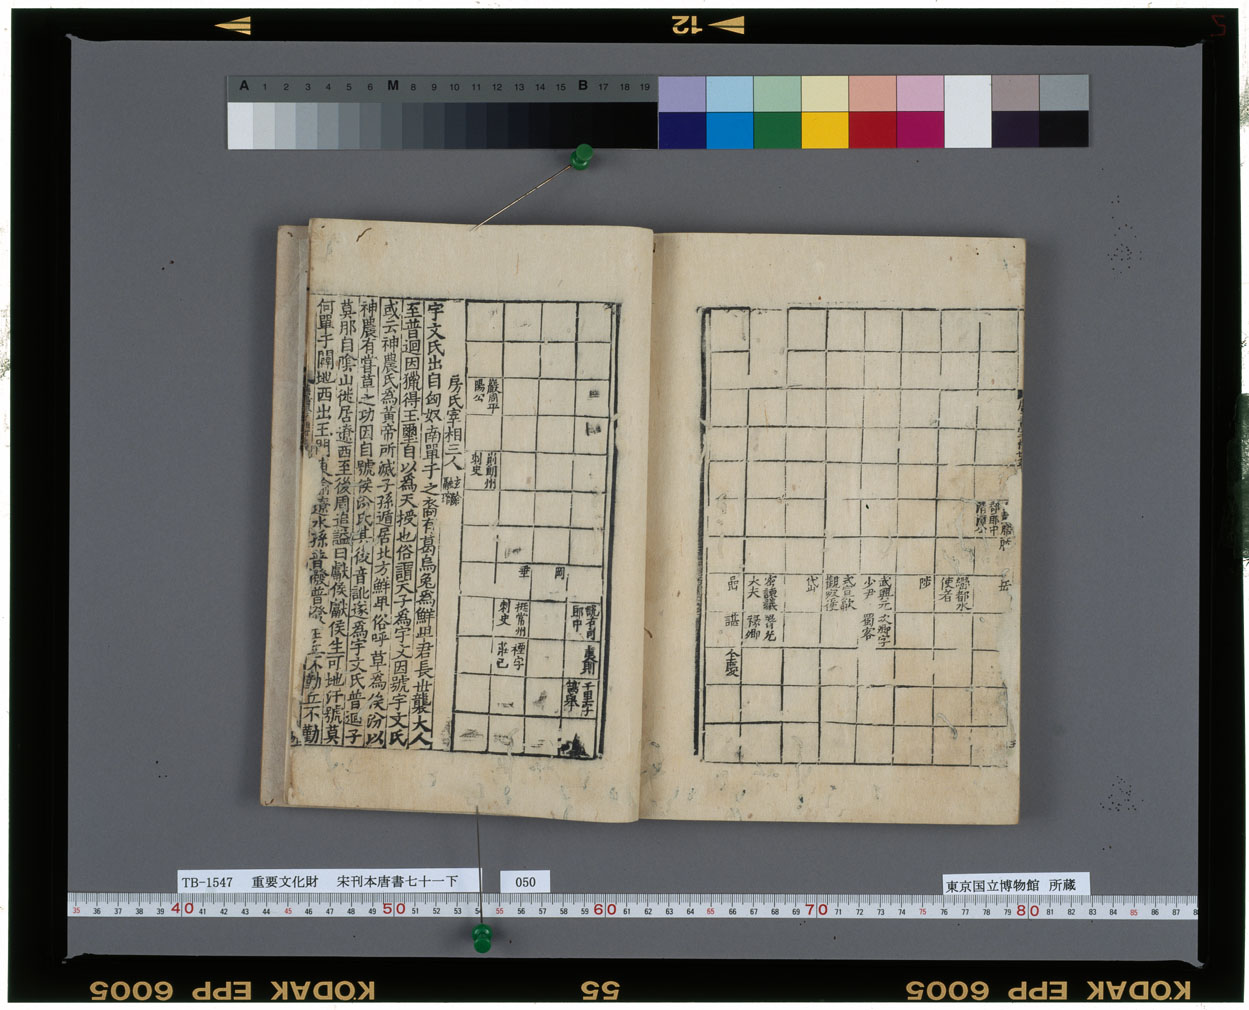 12
A 1 2 3 4 5 6 M 8 9 10 11 12 13 14 15 B 17 18 19
岳
營都水
使者
陟
武興元
少尹
文禮字
蜀客
式宣歙
觀察使
岱
宏諫議
大夫
璹光
祿卿
嵒
諶
全慶
千里字
萬舉
嵩
垂
挺常州
刺史
禋字
巖岡平
陽公
前朗州
刺史
房氏宰相三人
玄齡
融琯
宇文氏出自匈奴南單于之裔有葛烏兔爲鮮卑君長世襲大人
至普迴因獵得玉璽自以爲天授也俗謂天子爲宇文因號宇文氏
或云神農氏爲黃帝所滅子孫遁居北方鮮卑俗呼草爲俟汾以
神農有嘗草之功因自號俟汾氏其後音訛遂爲宇文氏普迴子
莫那自陰山徙居遼西至後周追謚曰獻侯獻侯生可地汗號莫
何單于闢地西出玉門東踰遼水孫普撥普撥生丘不勤丘不勤
TB-1547 重要文化財 宋刊本唐書七十一下
050
東京国立博物館 所蔵
35 36 37 38 39 40 41 42 43 44 45 46 47 48 49 50 51 52 53 54 55 56 57 58 59 60 61 62 63 64 65 66 67 68 69 70 71 72 73 74 75 76 77 78 79 80 81 82 83 84 85 86 87 8
KODAK EPP 6005
55
KODAK EPP 6005